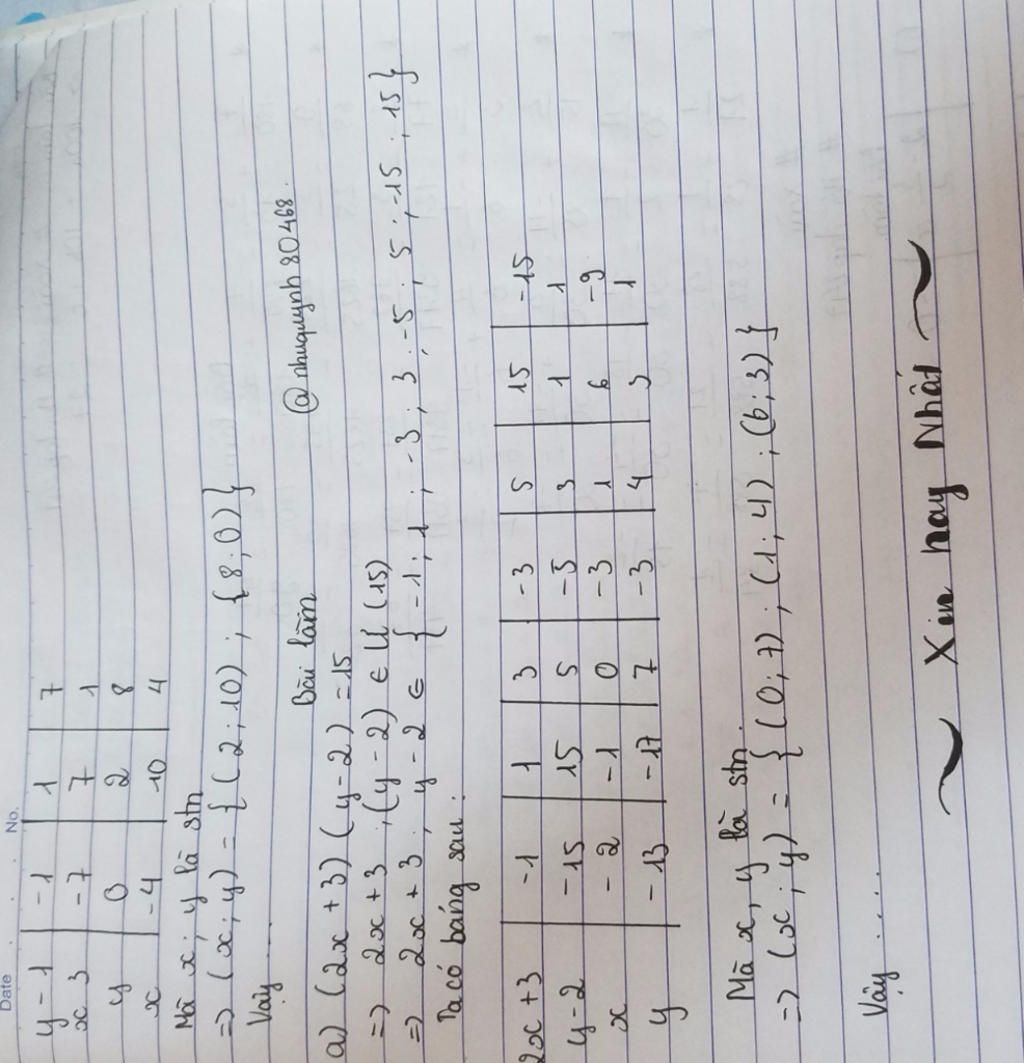 Date No.
y - 1 | -1 | 1 | 7
x 3 | -7 | 7 | 1
y | 0 | 2 | 8
x | -4 | 10 | 4
Mà x ; y là stn
=> (x ; y) = { (2 ; 10) ; {8 ; 0) }
Vậy ....
Bài làm @nhuquynh80468.
a) (2x + 3) (y - 2) = 15
=> 2x + 3 ; (y - 2) ∈ Ư (15)
=> 2x + 3 , y - 2 ∈ { -1 ; 1 ; -3 ; 3 ; -5 ; 5 ; -15 ; 15 }
Ta có bảng sau :
2x + 3 | -1 | 1 | 3 | -3 | 5 | 15 | -15
y - 2 | -15 | 15 | 5 | -5 | 3 | 1 | 1
x | -2 | -1 | 0 | -3 | 1 | 6 | -9
y | -13 | -17 | 7 | -3 | 4 | 3 | 1
Mà x, y là stn .
=> (x ; y) = { (0 ; 7) ; (1 ; 4) ; (6 ; 3) }
Vậy .....
~ Xin hay Nhất ~